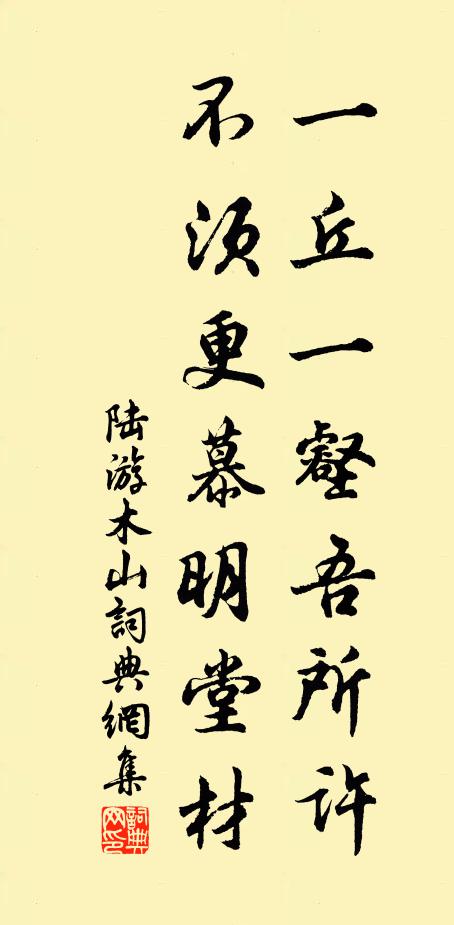 一丘一壑吾所许
不须更慕明堂材
陆游木山詞典網集
詞典网印